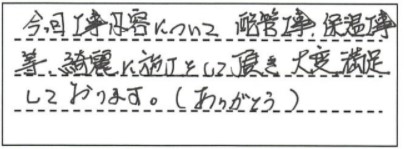 今回工事内容について 配管工事、保温工事
等、綺麗に施工として頂き 大変満足
しております。(ありがとう)